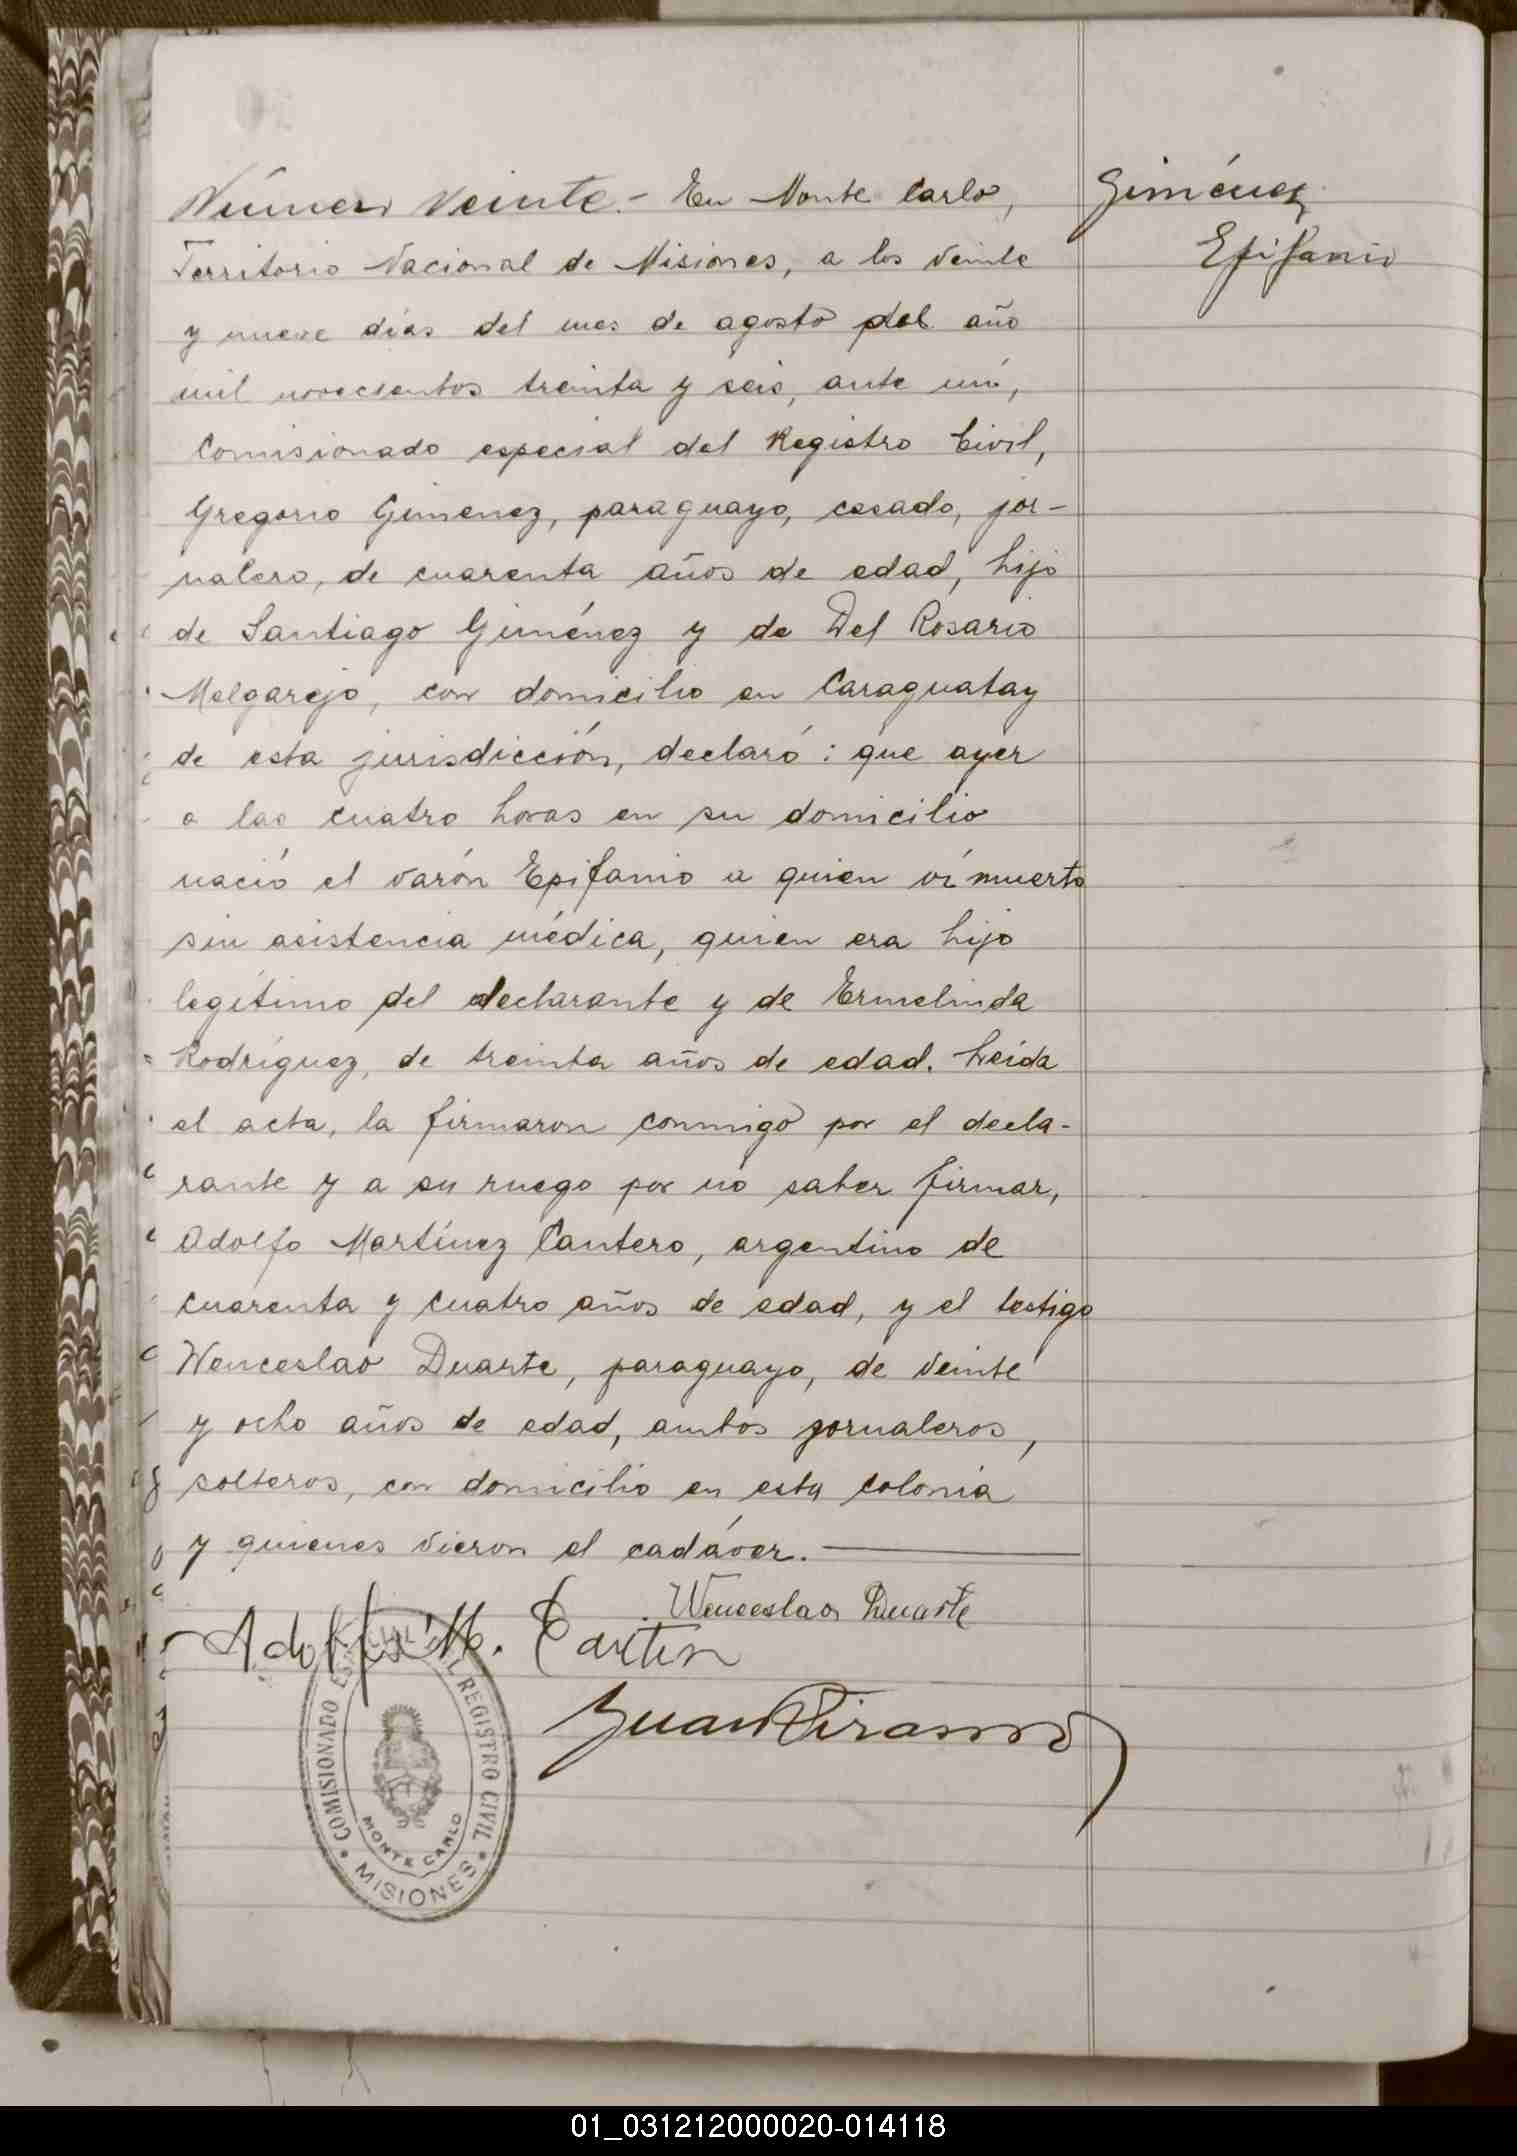 Número Veinte.- En Monte Carlo,
Territorio Nacional de Misiones, a los veinte
y nueve días del mes de agosto del año
mil novecientos treinta y seis, ante mí,
Comisionado especial del Registro Civil,
Gregorio Gimenez, paraguayo, casado, jor-
nalero, de cuarenta años de edad, hijo
de Santiago Giménez y de Del Rosario
Melgarejo, con domicilio en Caraguatay
de esta jurisdicción, declaró: que ayer
a las cuatro horas en su domicilio
nació el varón Epifanio a quien ví muerto
sin asistencia médica, quien era hijo
legítimo del declarante y de Ermelinda
Rodríguez, de treinta años de edad. Leída
el acta, la firmaron conmigo por el decla-
rante y a su ruego por no saber firmar,
Adolfo Martínez Cantero, argentino de
cuarenta y cuatro años de edad, y el testigo
Wenceslao Duarte, paraguayo, de veinte
y ocho años de edad, ambos jornaleros,
solteros, con domicilio en esta colonia
y quienes vieron el cadáver.
Giménez
Epifanio
Wenceslao Duarte
Adolfo M.
Juan
COMISIONADO ESPECIAL DEL REGISTRO CIVIL
MONTE CARLO
MISIONES
01_031212000020-014118